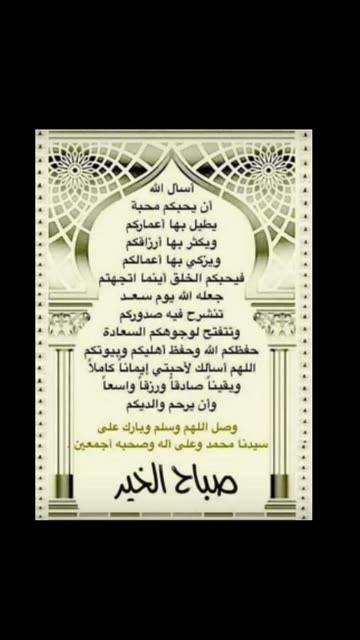 أسأل الله
أن يحبكم محبة
يطيل بها أعماركم
ويكثر بها أرزاقكم
ويزكي بها أعمالكم
فيحبكم الخلق أينما اتجهتم
جعله الله يوم سعد
تنشرح فيه صدوركم
وتتفتح لوجوهكم السعادة
حفظكم الله وحفظ أهليكم وبيوتكم
اللهم أسألك لأحبتي إيماناً كاملاً
ويقيناً صادقاً ورزقاً واسعاً
وأن يرحم والديكم
وصل اللهم وسلم وبارك على
سيدنا محمد وعلى آله وصحبه أجمعين .
صباح الخير